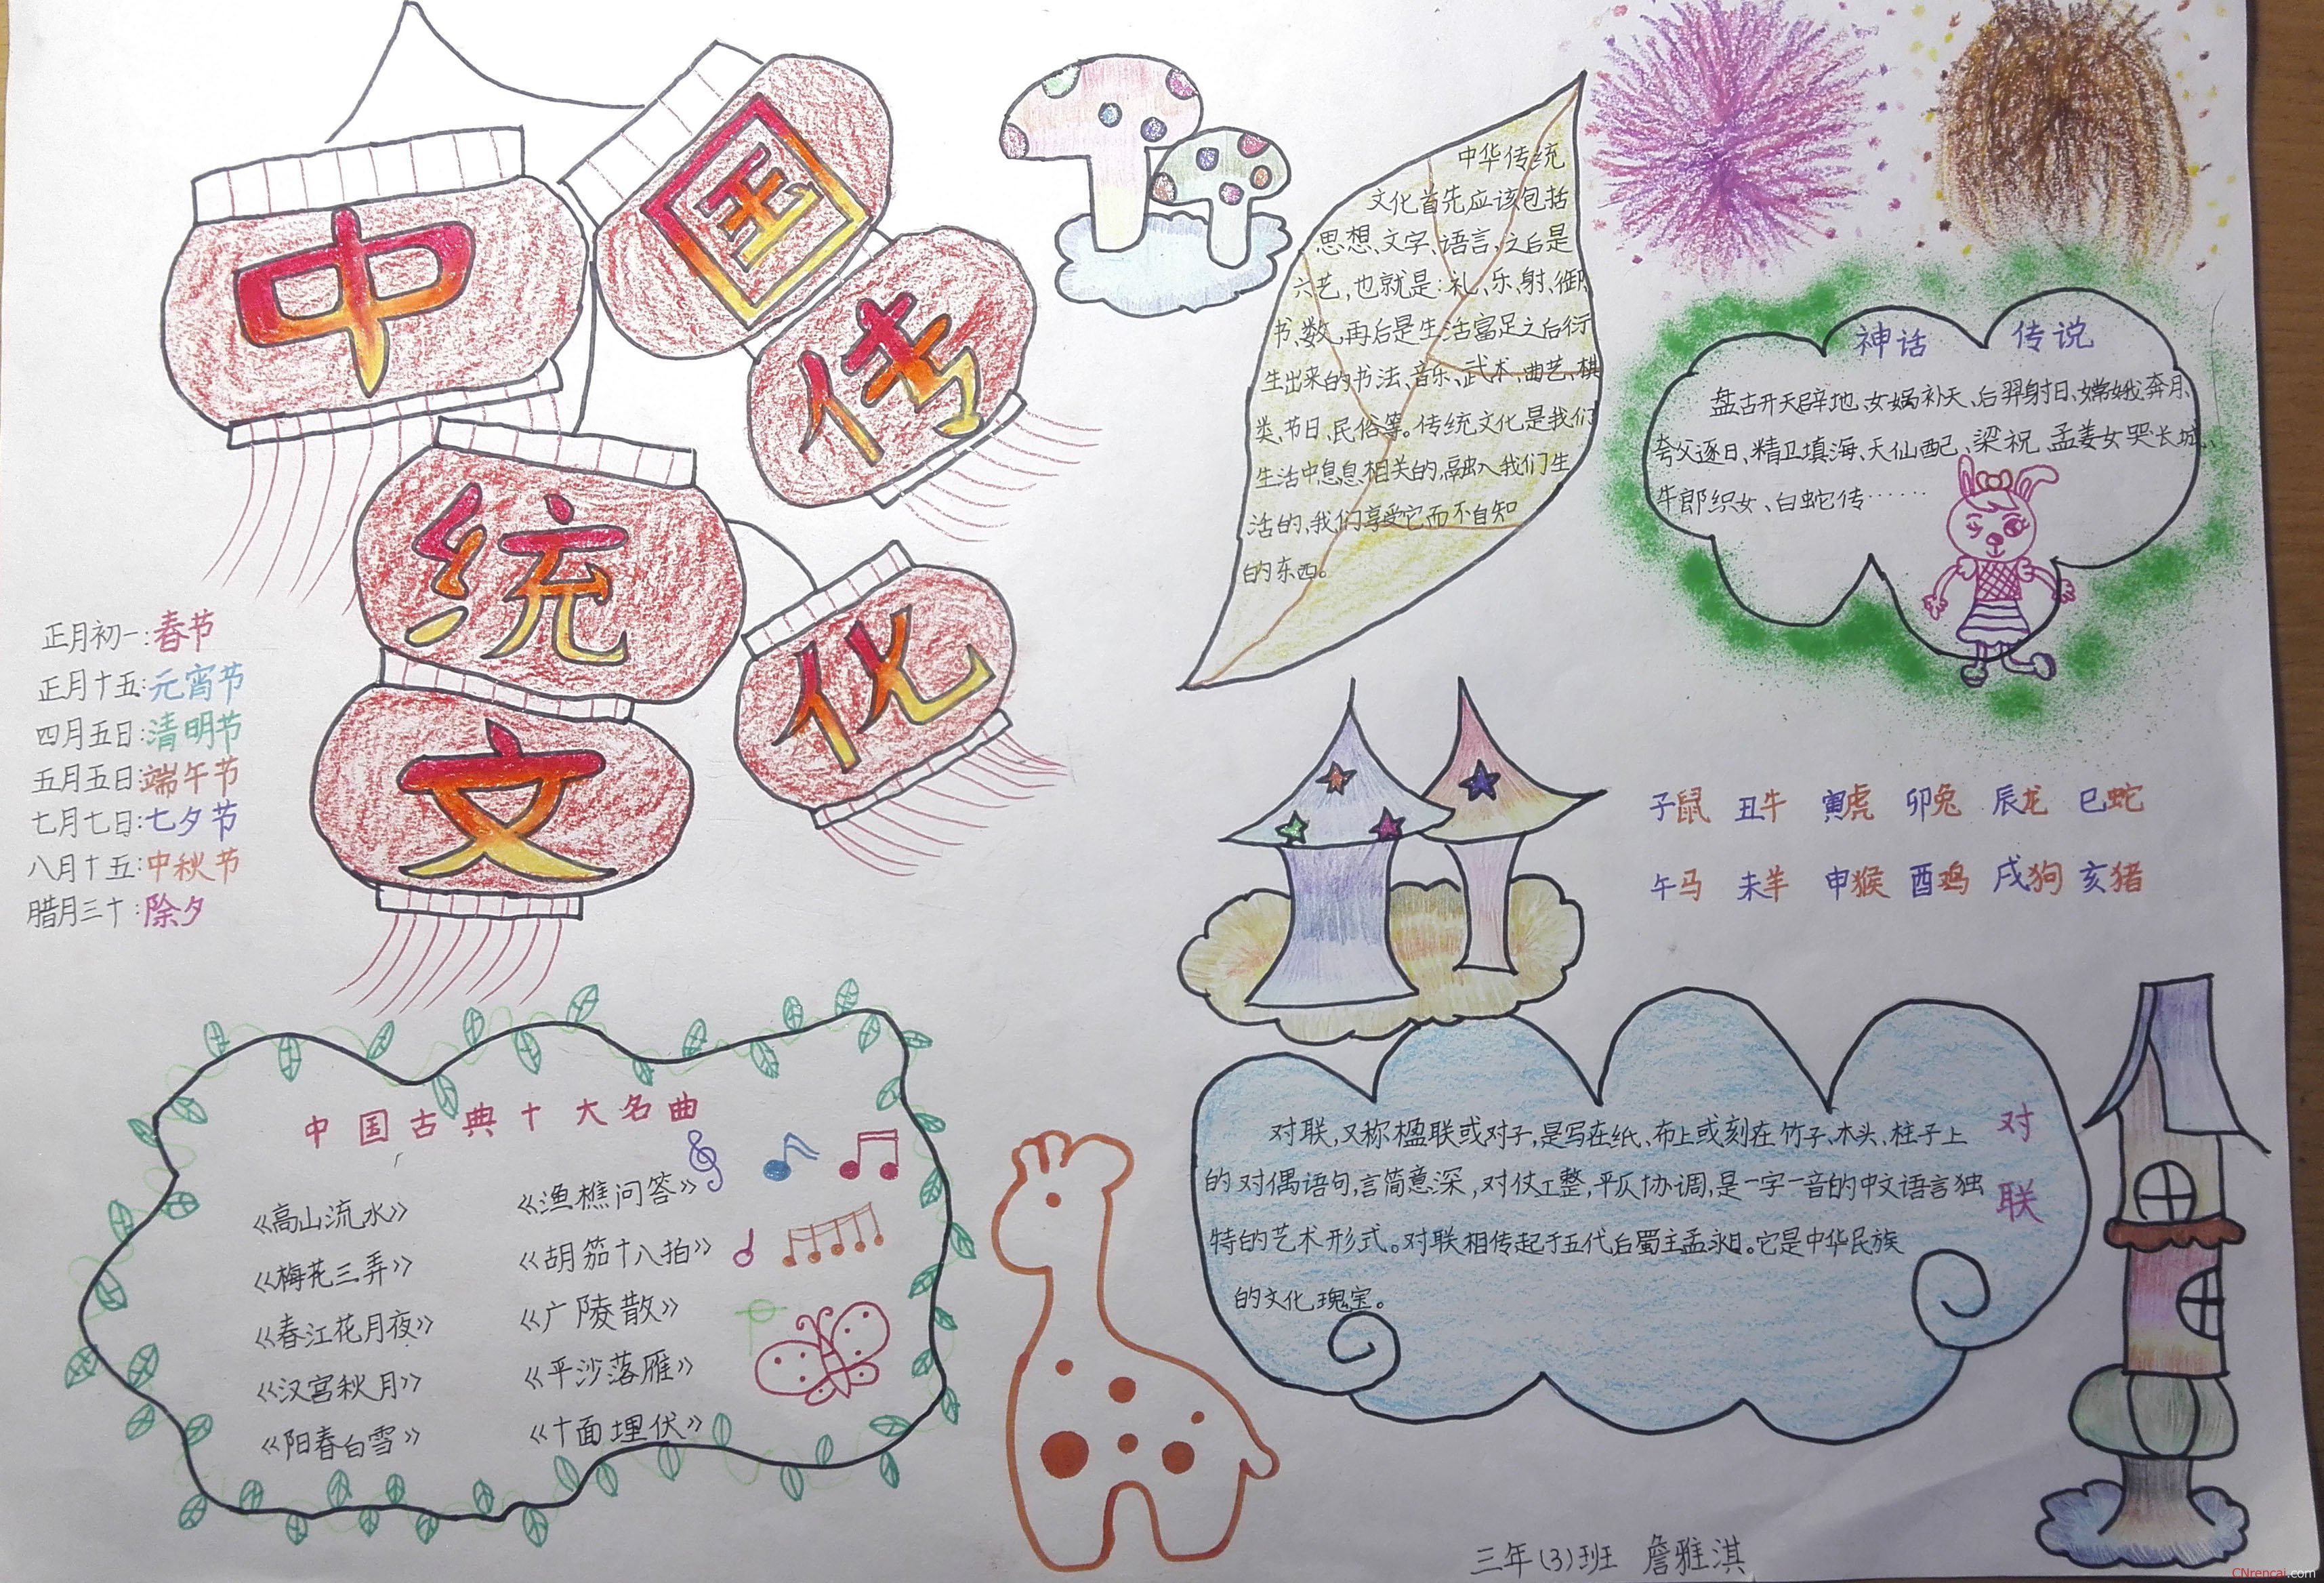 中国传统文化
正月初一:春节
正月十五:元宵节
四月五日:清明节
五月五日:端午节
七月七日:七夕节
八月十五:中秋节
腊月三十:除夕
中国古典十大名曲
《高山流水》
《梅花三弄》
《春江花月夜》
《汉宫秋月》
《阳春白雪》
《渔樵问答》
《胡笳十八拍》
《广陵散》
《平沙落雁》
《十面埋伏》
中华传统
文化首先应该包括
思想、文字、语言、之后是
六艺,也就是:礼、乐、射、御、
书、数,再后是生活富足之后衍
生出来的书法、音乐、武术、曲艺、棋
类、节日、民俗等。传统文化是我们
生活中息息相关的,融入我们生
活的,我们享受它而不自知
的东西。
神话 传说
盘古开天辟地、女娲补天、后羿射日、嫦娥奔月、
夸父逐日、精卫填海、天仙配、梁祝、孟姜女哭长城、
牛郎织女、白蛇传……
子鼠 丑牛 寅虎 卯兔 辰龙 巳蛇
午马 未羊 申猴 酉鸡 戌狗 亥猪
对联
对联,又称楹联或对子,是写在纸、布上或刻在竹子、木头、柱子上
的对偶语句,言简意深,对仗工整,平仄协调,是一字一音的中文语言独
特的艺术形式。对联相传起于五代后蜀主孟昶。它是中华民族
的文化瑰宝。
三年(3)班 詹雅淇
CNrencai.com